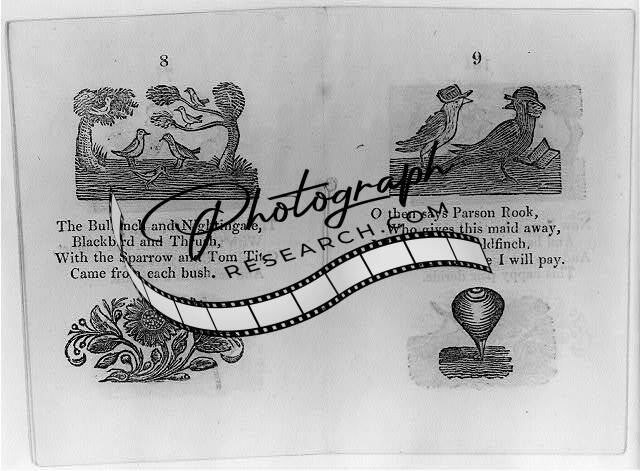 8
The and Nightingale,
Blackbird and Thrush,
With the Sparrow and Tom Tit,
Came from each bush.
9
O then says Parson Rook,
Who gives this maid away,
I will pay.
Photograph
RESEARCH.COM